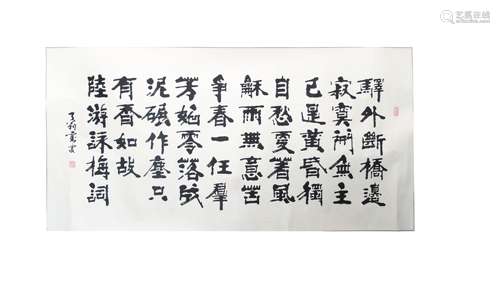 驛外斷橋邊
寂寞開無主
已是黃昏獨
自愁更著風
龢雨無意苦
爭春一任羣
芳妬零落成
泥碾作塵只
有香如故
陸游詠梅詞
艺狐在线